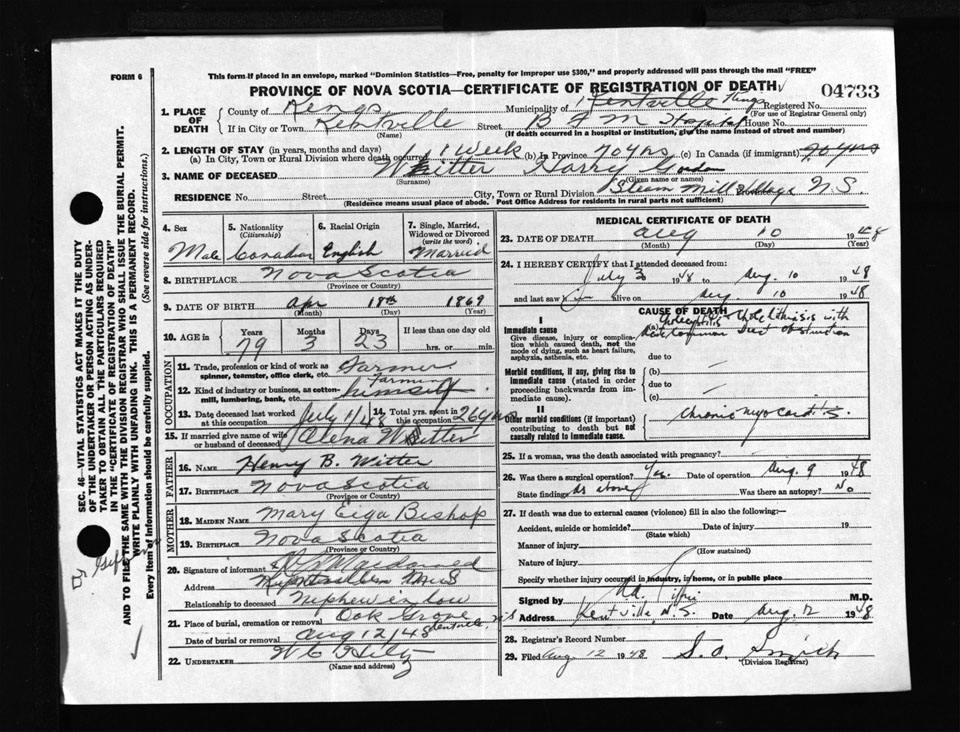 FORM 6
This form if placed in an envelope, marked "Dominion Statistics—Free, penalty for improper use $300," and properly addressed will pass through the mail "FREE"
PROVINCE OF NOVA SCOTIA—CERTIFICATE OF REGISTRATION OF DEATH
04733
1. PLACE OF DEATH
County of Kings Municipality of Kentville Kings Registered No.
(For use of Registrar General only)
If in City or Town Kentville Street B F M Hospital House No.
(Name) (If death occurred in a hospital or institution, give the name instead of street and number)
2. LENGTH OF STAY (in years, months and days)
(a) In City, Town or Rural Division where death occurred 1 Week (b) In Province 70 yrs (c) In Canada (if immigrant) 70 yrs
3. NAME OF DECEASED Witter Harry
(Surname) (Given name or names)
RESIDENCE No. Street City, Town or Rural Division Steam Mill Village N.S.
(Residence means usual place of abode. Post Office Address for residents in rural parts not sufficient)
4. Sex Male
5. Nationality (Citizenship) Canadian
6. Racial Origin English
7. Single, Married, Widowed or Divorced (write the word) Married
8. BIRTHPLACE Nova Scotia
(Province or Country)
9. DATE OF BIRTH Apr 18th 1869
(Month) (Day) (Year)
10. AGE in Years 79 Months 3 Days 23 If less than one day old hrs. or min.
OCCUPATION
11. Trade, profession or kind of work as spinner, teamster, office clerk, etc. Farmer
12. Kind of industry or business, as cotton-mill, lumbering, bank, etc. Farming himself
13. Date deceased last worked at this occupation July 1/48 14. Total yrs. spent in this occupation 26 yrs
15. If married give name of wife or husband of deceased Alena Witter
FATHER
16. NAME Henry B. Witter
17. BIRTHPLACE Nova Scotia
(Province or Country)
MOTHER
18. MAIDEN NAME Mary Eiga Bishop
19. BIRTHPLACE Nova Scotia
(Province or Country)
20. Signature of informant Macdonald
Address
Relationship to deceased Nephew in law
21. Place of burial, cremation or removal Oak Grove Kentville, N.S
Date of burial or removal Aug 12/48
22. UNDERTAKER
(Name and address)
MEDICAL CERTIFICATE OF DEATH
23. DATE OF DEATH Aug 10 1948
(Month) (Day) (Year)
24. I HEREBY CERTIFY that I attended deceased from:
July 3 1948 to Aug. 10 1948
and last saw alive on Aug. 10 1948
CAUSE OF DEATH
I
Immediate cause
Give disease, injury or complication which caused death, not the mode of dying, such as heart failure, asphyxia, asthenia, etc.
(a) Cholelithiasis with Common Duct obstruction
due to
Morbid conditions, if any, giving rise to immediate cause (stated in order proceeding backwards from immediate cause).
(b)
due to
(c)
II
Other morbid conditions (if important) contributing to death but not causally related to immediate cause.
Chronic myocarditis.
25. If a woman, was the death associated with pregnancy?
26. Was there a surgical operation? Yes. Date of operation Aug. 9 1948
State findings As above Was there an autopsy? No
27. If death was due to external causes (violence) fill in also the following:—
Accident, suicide or homicide? Date of injury 19
(State which)
Manner of injury
(How sustained)
Nature of injury
Specify whether injury occurred in industry, in home, or in public place
Signed by M.D.
Address Kentville, N.S. Date Aug. 12 1948
28. Registrar's Record Number
29. Filed Aug. 12 1948 S. O. Smith
(Division Registrar)
SEC. 46—VITAL STATISTICS ACT MAKES IT THE DUTY
OF THE UNDERTAKER OR PERSON ACTING AS UNDER-
TAKER TO OBTAIN ALL THE PARTICULARS REQUIRED
IN THE "CERTIFICATE OF REGISTRATION OF DEATH"
AND TO FILE THE SAME WITH THE DIVISION REGISTRAR WHO SHALL ISSUE THE BURIAL PERMIT.
WRITE PLAINLY WITH UNFADING INK. THIS IS A PERMANENT RECORD.
Every item of information should be carefully supplied. (See reverse side for instructions.)